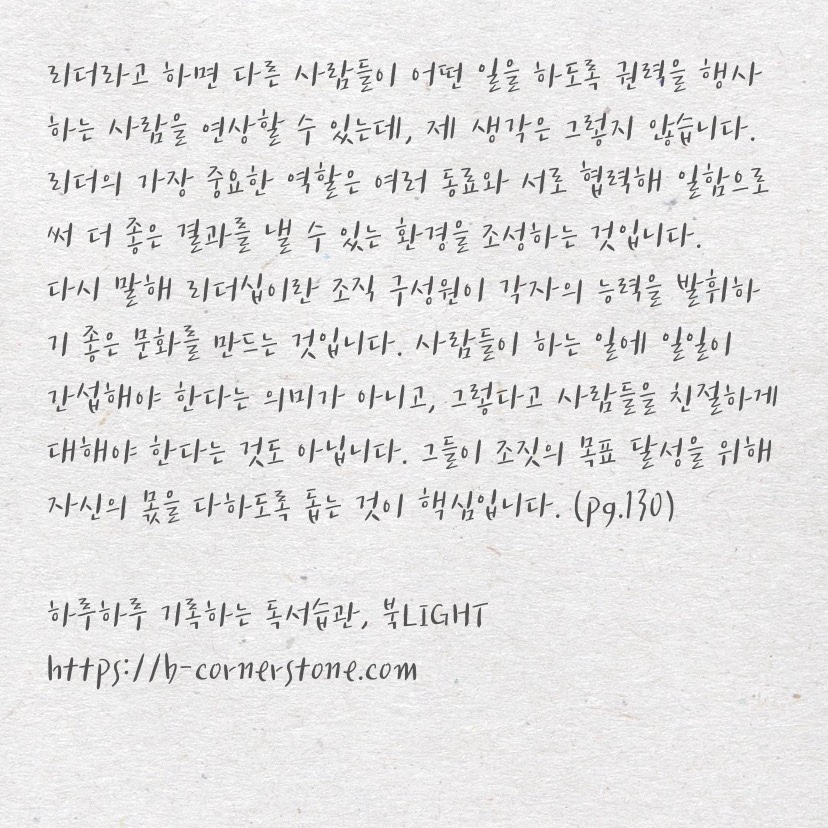 리더라고 하면 다른 사람들이 어떤 일을 하도록 권력을 행사
하는 사람을 연상할 수 있는데, 제 생각은 그렇지 않습니다.
리더의 가장 중요한 역할은 여러 동료와 서로 협력해 일함으로
써 더 좋은 결과를 낼 수 있는 환경을 조성하는 것입니다.
다시 말해 리더십이란 조직 구성원이 각자의 능력을 발휘하
기 좋은 문화를 만드는 것입니다. 사람들이 하는 일에 일일이
간섭해야 한다는 의미가 아니고, 그렇다고 사람들을 친절하게
대해야 한다는 것도 아닙니다. 그들이 조짓의 목표 달성을 위해
자신의 몫을 다하도록 돕는 것이 핵심입니다. (pg.130)
하루하루 기록하는 독서습관, 북LIGHT
https://b-cornerstone.com